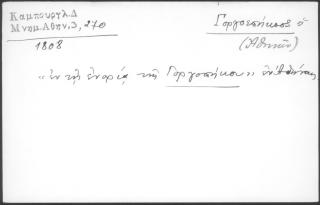 Καμπούρογλ.Δ
Μνημ.Αθην.3, 270
1808
Γοργοεπήκοος ὁ
(Ἀθηνῶν)
«ἐν τῇ ἐνορίᾳ τῆς Γοργοπήκου» ἐν Ἀθήναις